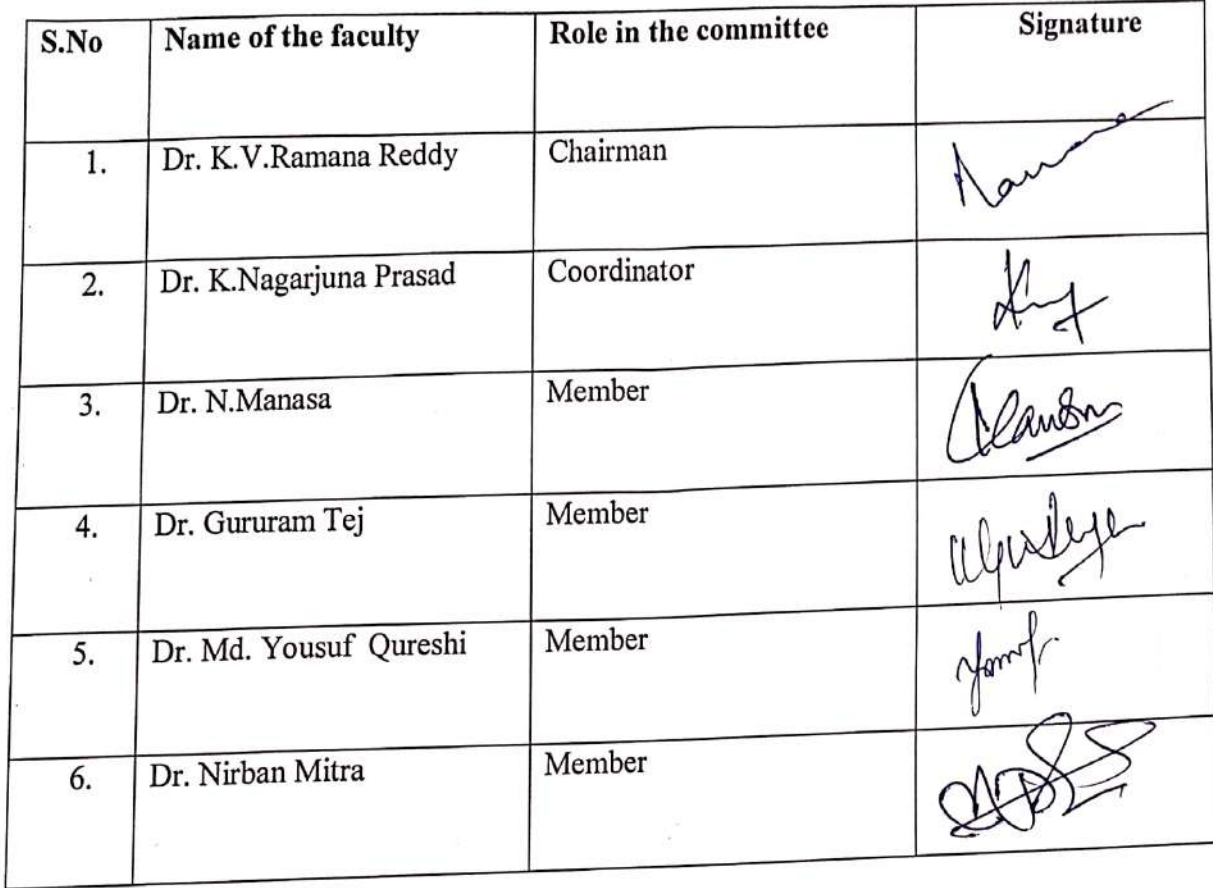 S.No Name of the faculty Role in the committee Signature
1. Dr. K.V.Ramana Reddy Chairman
2. Dr. K.Nagarjuna Prasad Coordinator
3. Dr. N.Manasa Member
4. Dr. Gururam Tej Member
5. Dr. Md. Yousuf Qureshi Member
6. Dr. Nirban Mitra Member